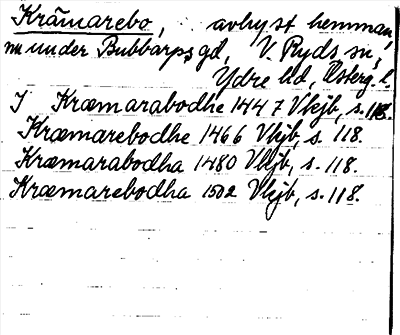 Krämarebo, avhyst hemman,
nu under Bubbarps gd, V. Ryds sn,
Ydre hd, Österg. l.
I Kræmarabodhe 1447 Vkjb, s. 118.
Kræmarebodhe 1466 Vkjb, s. 118.
Kræmarabodha 1480 Vkjb, s. 118.
Kræmarebodha 1502 Vkjb, s. 118.